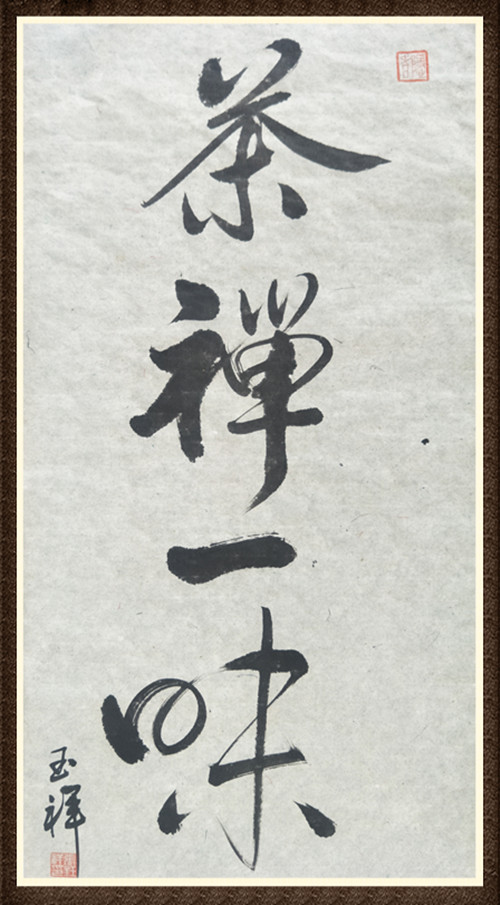 茶禪一味
玉祥